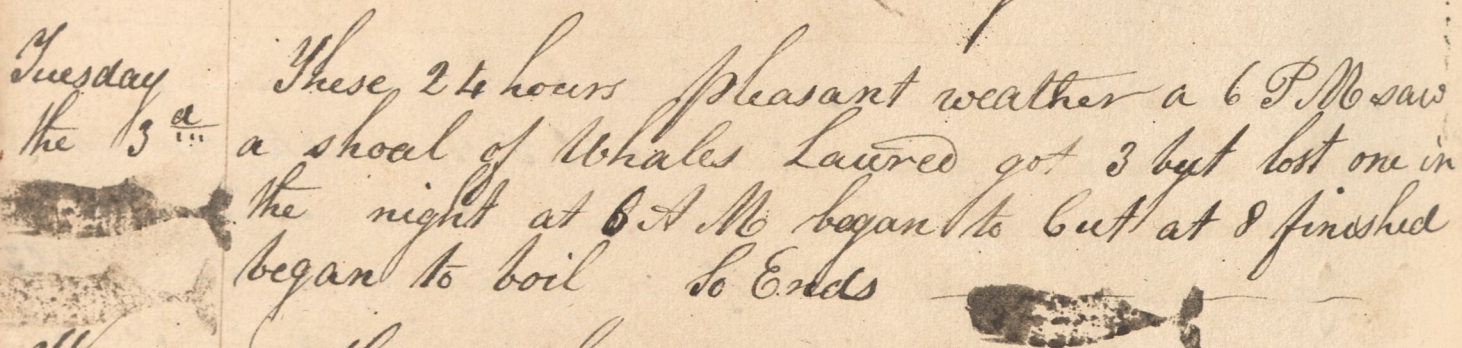 Tuesday These 24 hours pleasant weather a 6 P M saw
the 3d a shoal of Whales Lawred got 3 but lost one in
the night at 6 A M began to Cut at 8 finished
began to boil So Ends